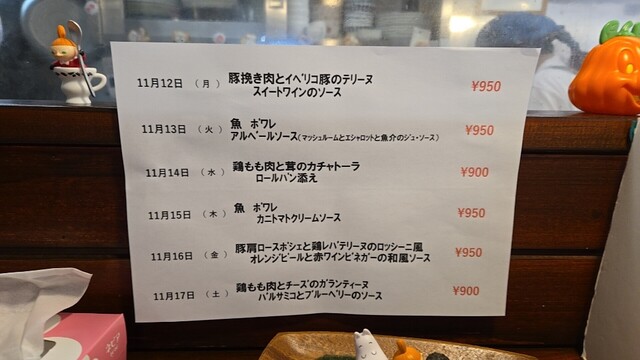 11月12日 （月） 豚挽き肉とイベリコ豚のテリーヌ ¥950
スイートワインのソース
11月13日 （火） 魚 ポワレ ¥950
アルベールソース(マッシュルームとエシャロットと魚介のジュ・ソース)
11月14日 （水） 鶏もも肉と茸のカチャトーラ ¥900
ロールパン添え
11月15日 （木） 魚 ポワレ ¥950
カニトマトクリームソース
11月16日 （金） 豚肩ロースポシェと鶏レバテリーヌのロッシーニ風 ¥950
オレンジピールと赤ワインビネガーの和風ソース
11月17日 （土） 鶏もも肉とチーズのガランティーヌ ¥900
バルサミコとブルーベリーのソース